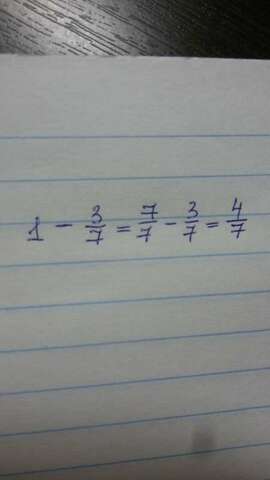 1 - 3/7 = 7/7 - 3/7 = 4/7